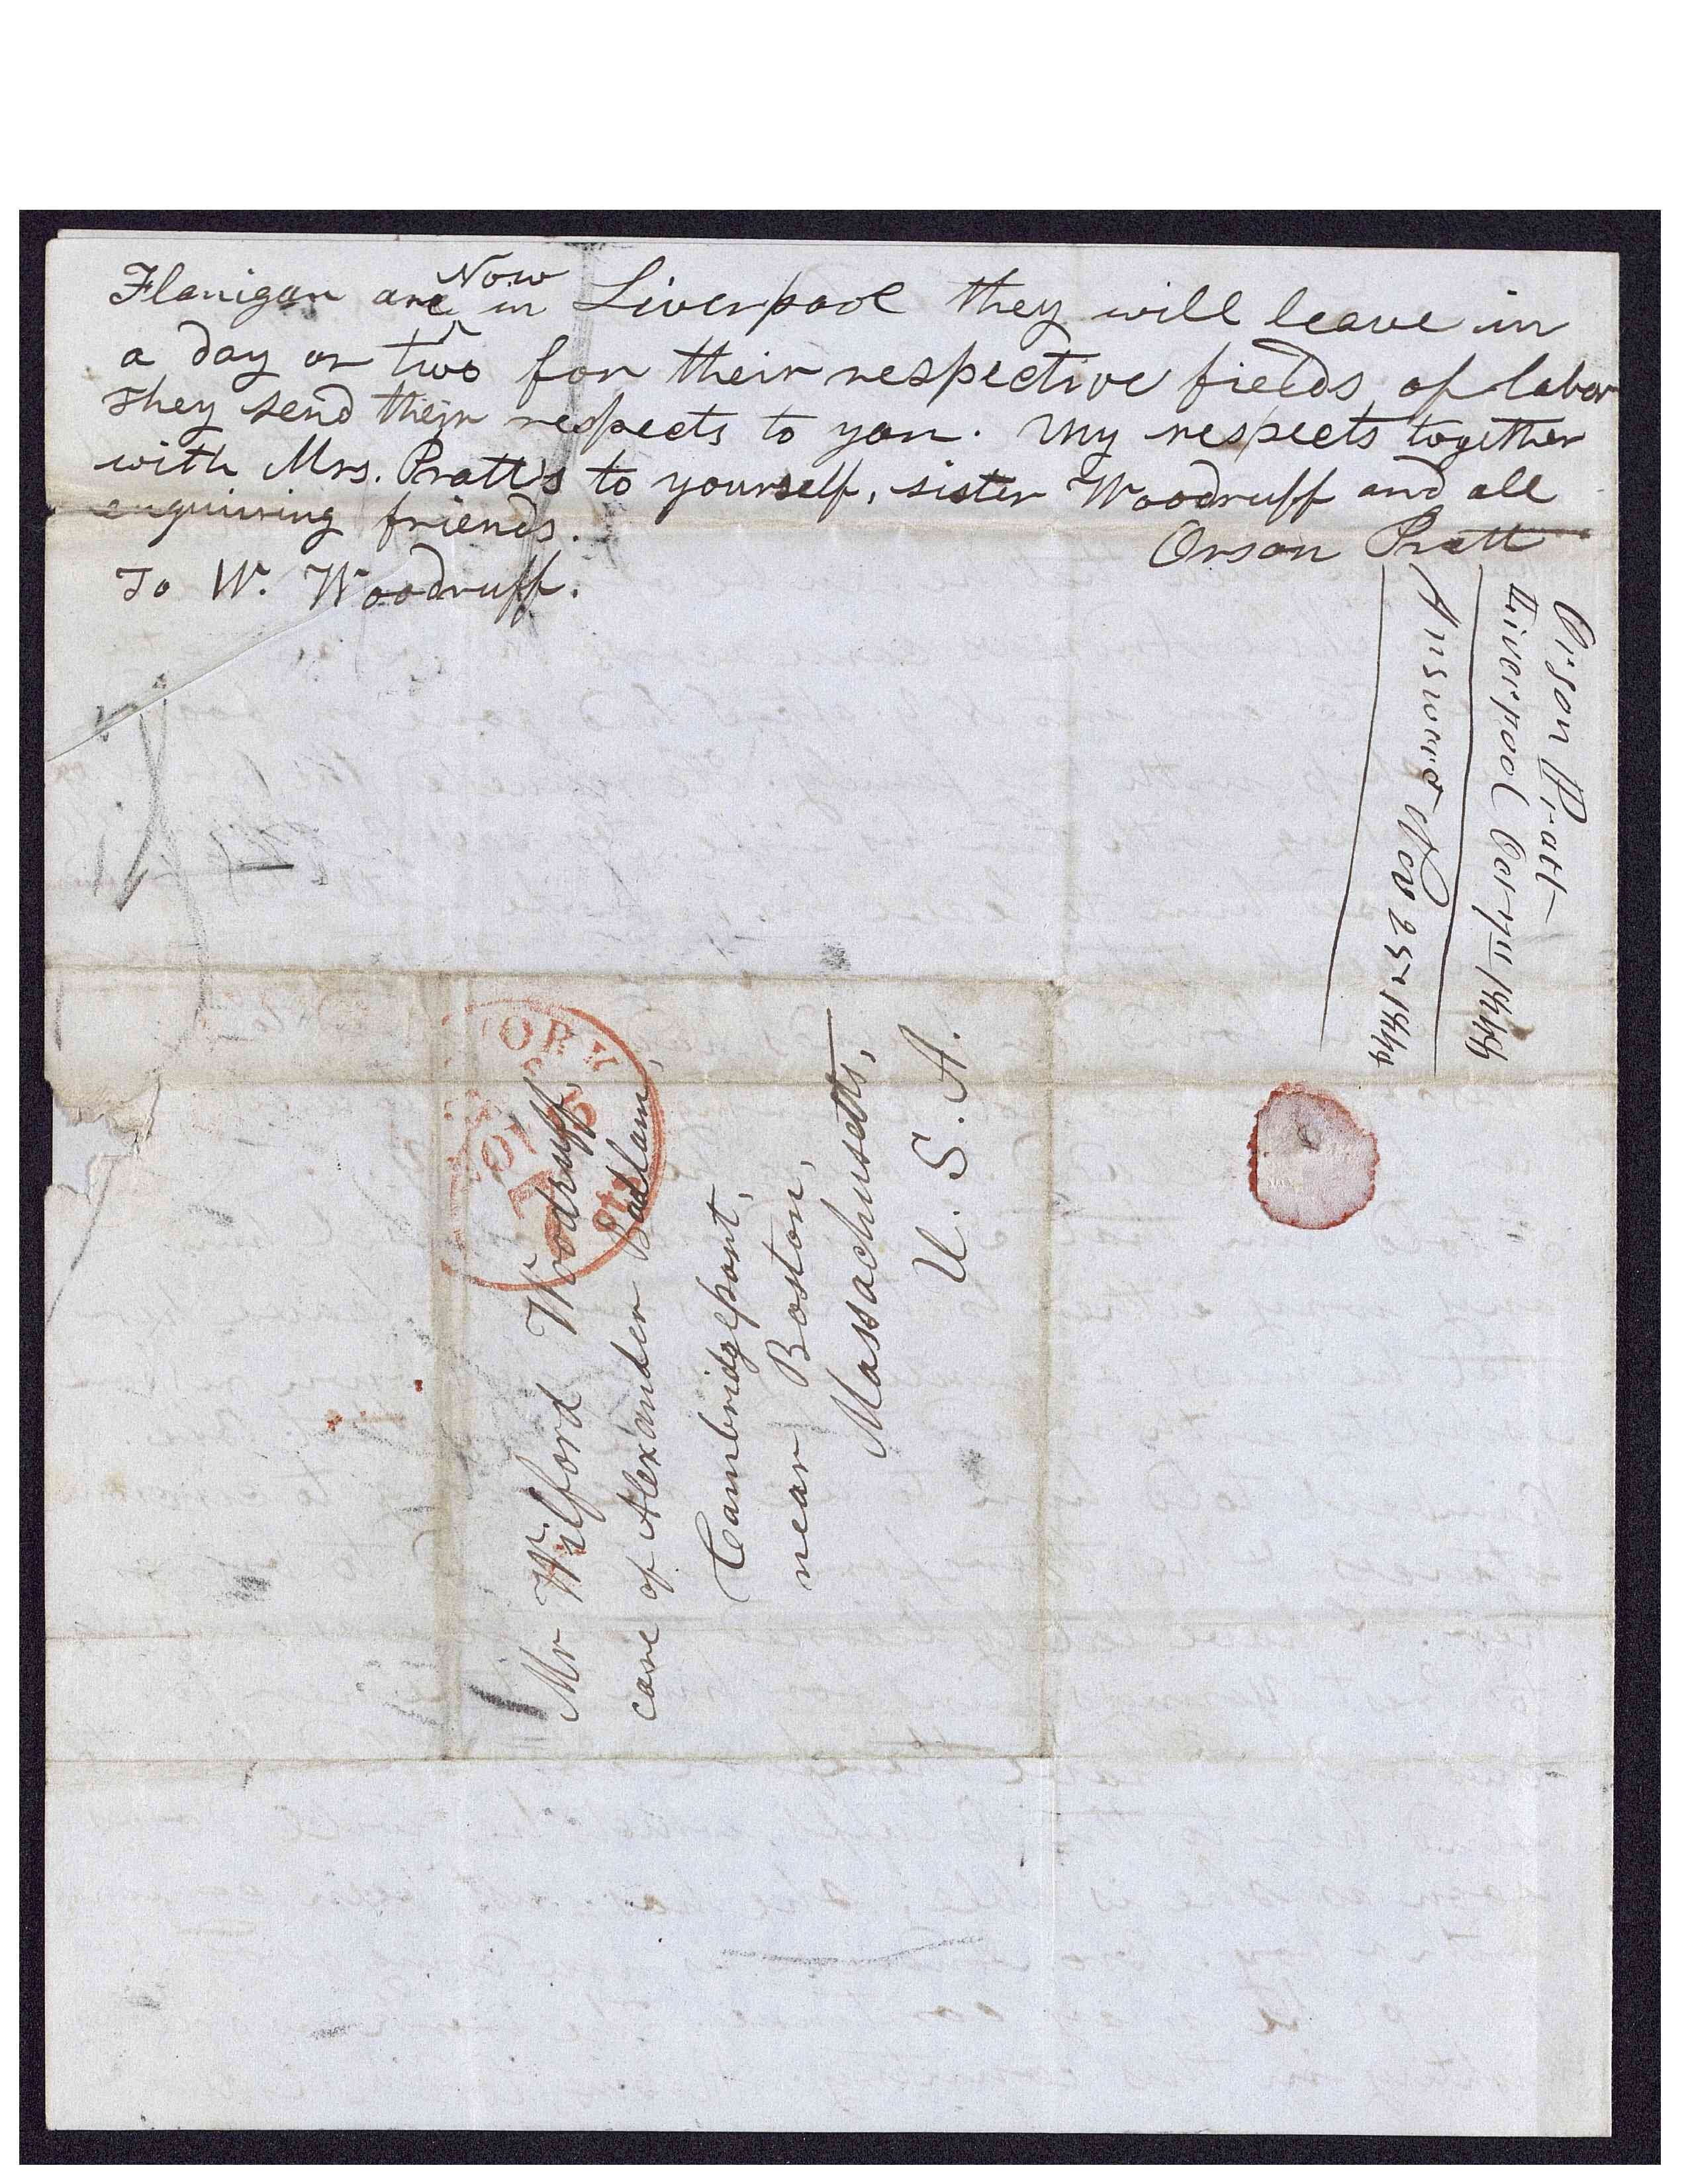 Flanigan are Now in Liverpool they will leave in
a day or two for their respective fields of labor
They send their respects to you. My respects together
with Mrs. Pratt's to yourself, sister Woodruff and all
enquiring friends.
Orson Pratt
To W. Woodruff.
Orson Pratt
Liverpool Oct
Answered Nov 25
Mr Wilford Woodruff
care of Alexander Badlam,
Cambridgeport,
near Boston,
Massachusetts,
U. S. A.
YORK